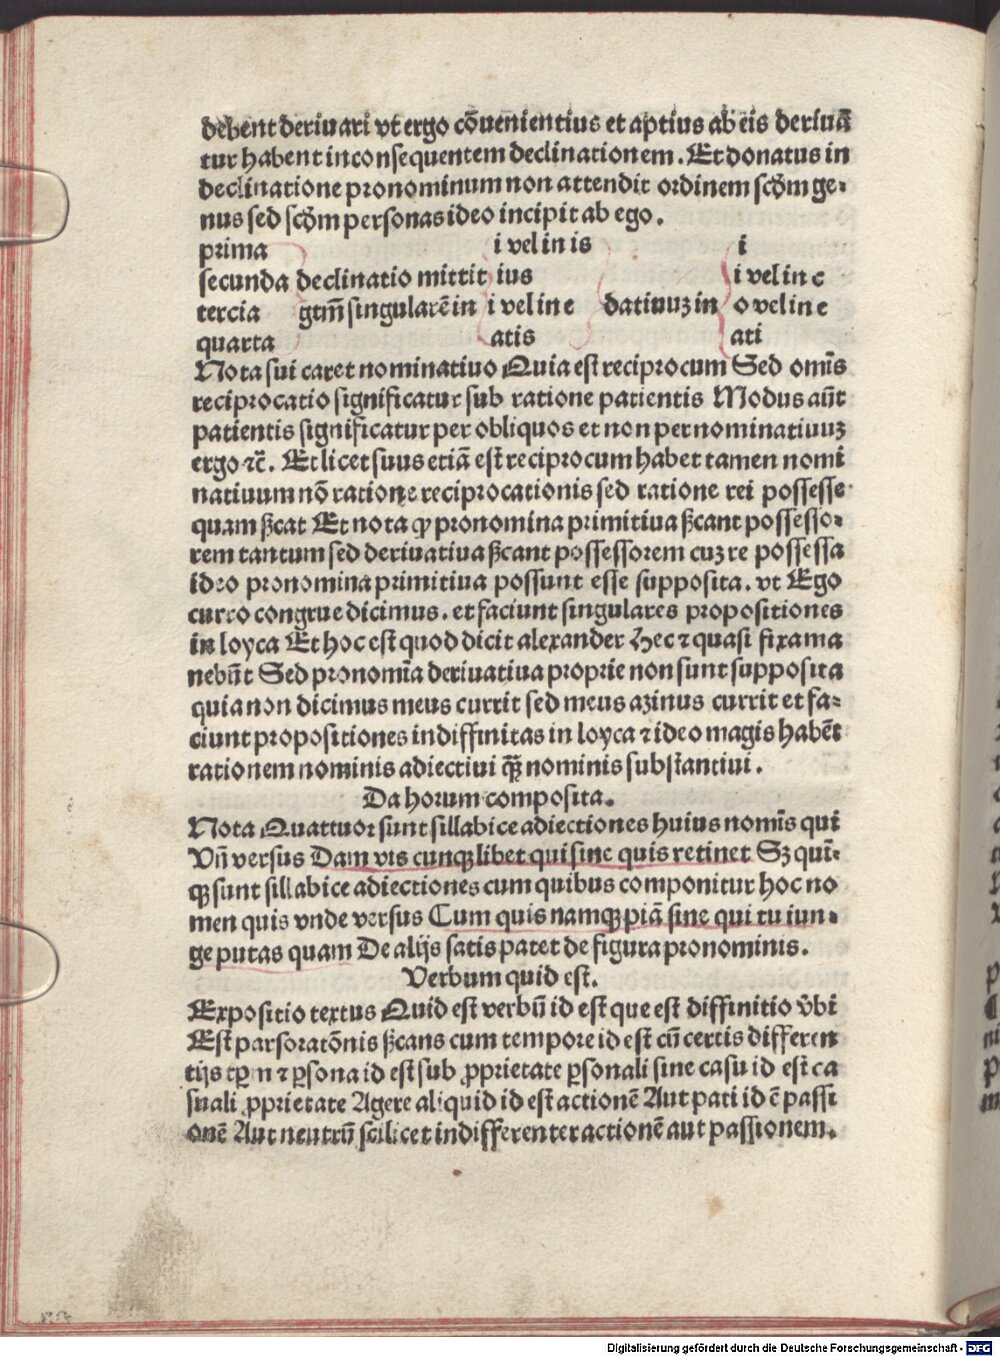 debent deriuari vt ergo cōuenientius et aptius ab eis deriuā
tur habent inconsequentem declinationem. Et donatus in
declinatione pronominum non attendit ordinem scđm ge-
nus sed scđm personas ideo incipit ab ego.
prima i vel in is i
secunda declinatio mittit ius i vel in e
tercia gtm̄ singularē in i vel in e datiuuʒ in o vel in e
quarta atis ati
Nota sui caret nominatiuo Quia est reciprocum Sed omīs
reciprocatio significatur sub ratione patientis Modus aūt
patientis significatur per obliquos et non per nominatiuuʒ
ergo ⁊c̄. Et licet suus etiā est reciprocum habet tamen nomi
natiuum nō ratione reciprocationis sed ratione rei possesse
quam ßcat Et nota ꝙ pronomina primitiua ßcant possesso-
rem tantum sed deriuatiua ßcant possessorem cuʒ re possessa
ideo pronomina primitiua possunt esse supposita. vt Ego
curro congrue dicimus. et faciunt singulares propositiones
in loyca Et hoc est quod dicit alexander Hec ⁊ quasi fixa ma
nebūt Sed pronomīa deriuatiua proprie non sunt supposita
quia non dicimus meus currit sed meus azinus currit et fa-
ciunt propositiones indiffinitas in loyca ⁊ ideo magis habēt
rationem nominis adiectiui q̄ꝫ nominis substantiui.
Da horum composita.
Nota Quattuor sunt sillabice adiectiones huius nomīs qui
Vn̄ versus Dam vis cunqꝫ libet qui sine quis retinet Sʒ quī-
qꝫ sunt sillabice adiectiones cum quibus componitur hoc no
men quis vnde versus Cum quis namqꝫ piā sine qui tu iun-
ge putas quam De alijs satis patet de figura pronominis.
Verbum quid est.
Expositio textus Quid est verbū id est que est diffinitio v̄bi
Est pars oratōnis ßcans cum tempore id est cū certis differen
tijs tꝑm ⁊ ꝑsona id est sub ꝓprietate ꝑsonali sine casu id est ca
suali ꝓprietate Agere aliquid id est actionē Aut pati id ē passi
onē Aut neutrū scilicet indifferenter actionē aut passionem.
Digitalisierung gefördert durch die Deutsche Forschungsgemeinschaft - DFG